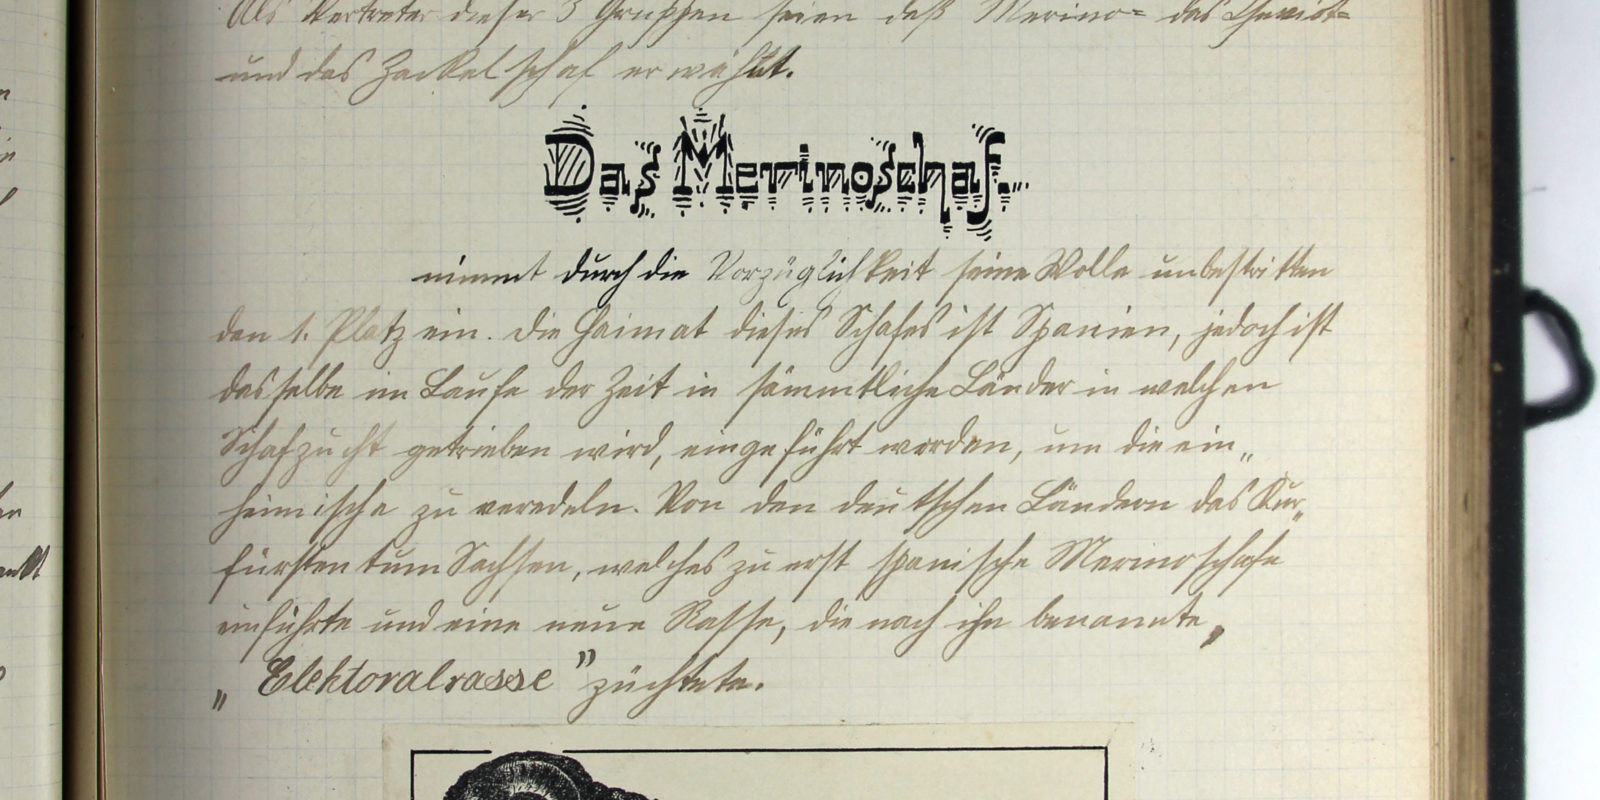 Als Vertreter dieser 3 Gruppen seien daß Merino= das Cheviot=
und das Zackelschaf erwähnt.
Das Merrinoschaf.
nimmt durch die Vorzüglichkeit seine Wolle unbestritten
den 1. Platz ein. Die Heimat dieses Schafes ist Spanien, jedoch ist
dasselbe im Laufe der Zeit in sämmtliche Länder in welchen
Schafzucht getrieben wird, eingeführt worden, um die ein„
heimische zu veredeln. Von den deutschen Ländern das Kur„
fürstentum Sachsen, welches zu erst spanische Merinoschafe
einführte und eine neue Rasse, die nach ihr benannte,
„Elektoralrasse" züchtete.